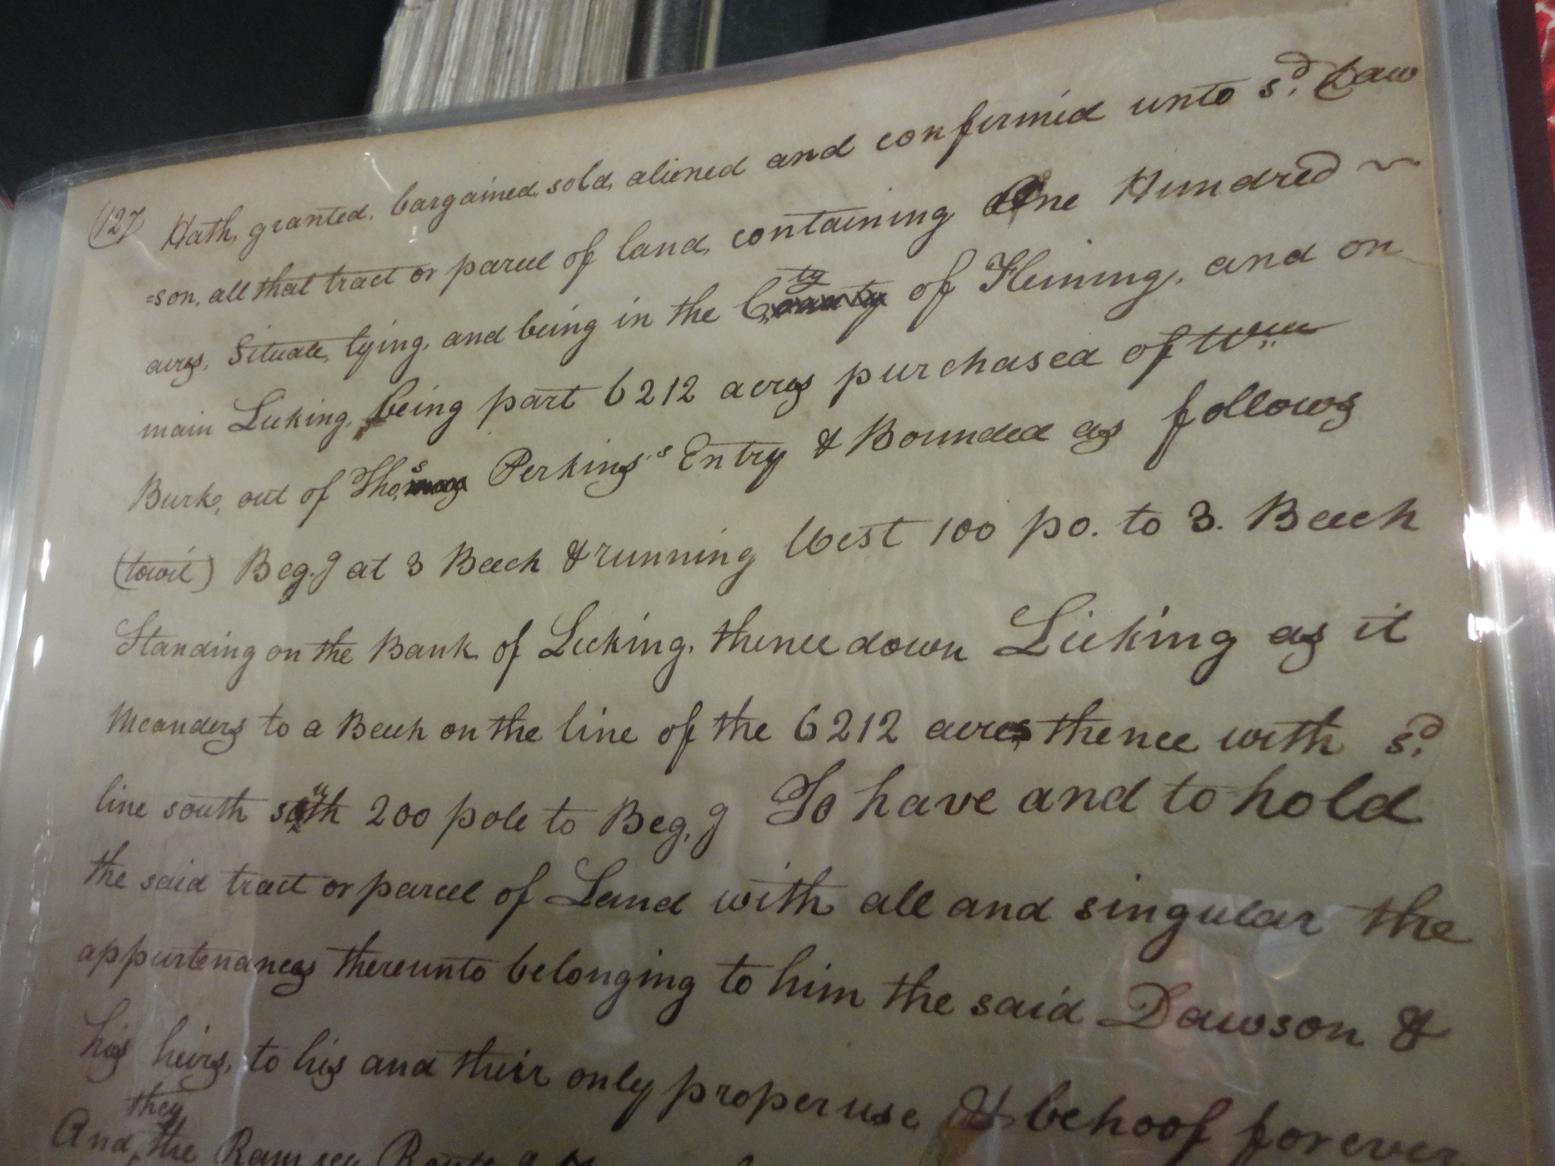 (127) Hath, granted, bargained, sold, aliened and confirmed unto sd. Daw
=son, all that tract or parcel of land, containing One Hundred ~
acres, Situate, lying, and being in the Cty of Fleming, and on
main Licking, being part 6212 acres purchased of Wm
Burk, out of Thos Perkins's Entry & Bounded as follows
(towit) Beg.g at 3 Beech & running West 100 po. to 3. Beech
Standing on the Bank of Licking, thence down Licking as it
Meanders to a Beech on the line of the 6212 acres thence with sd.
line south south 200 pole to Beg.g To have and to hold
the said tract or parcel of Land with all and singular the
appurtenances thereunto belonging to him the said Dawson &
his heirs, to his and their only proper use & behoof forever
And, they the Ramsey